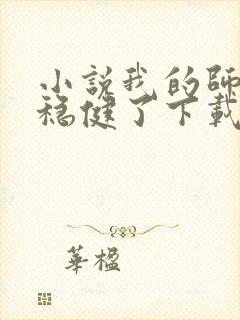 小說我的師
稳健了下載
華楹